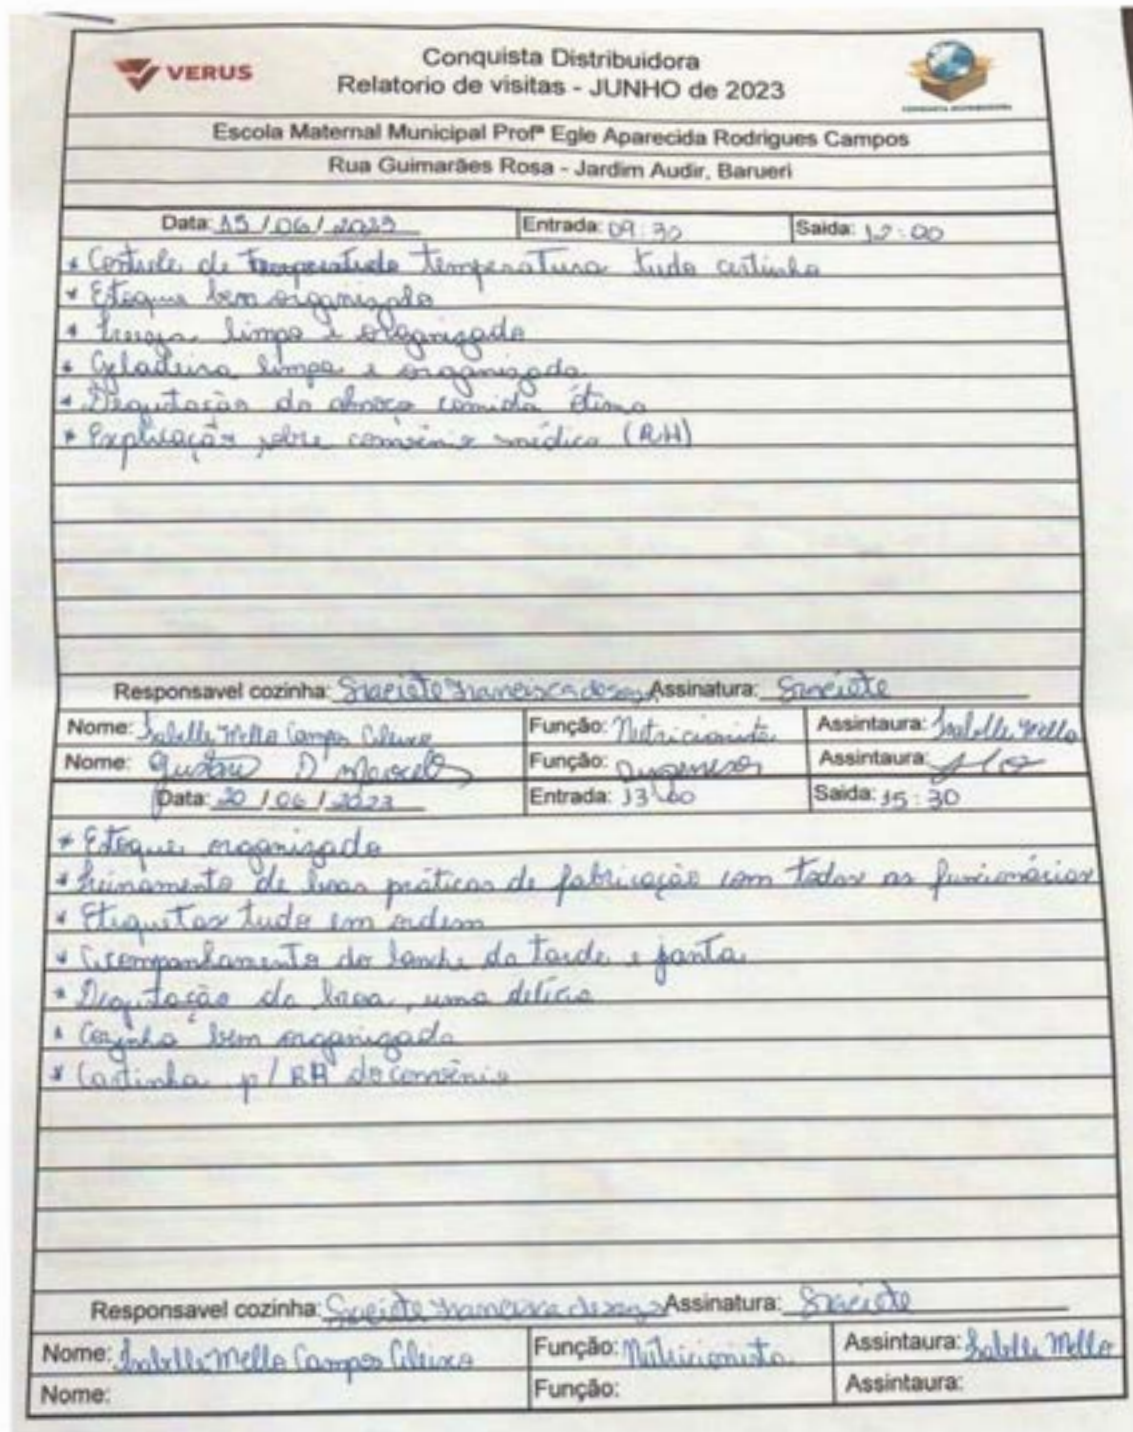 VERUS
Conquista Distribuidora
Relatorio de visitas - JUNHO de 2023
CONQUISTA DISTRIBUIDORA
Escola Maternal Municipal Profª Egle Aparecida Rodrigues Campos
Rua Guimarães Rosa - Jardim Audir, Barueri
Data: 15 / 06 / 2023 Entrada: 09:30 Saida: 12:00
* Controle de temperatura tudo certinho
* Estoque bem organizado
* limpo e organizado
* Geladeira limpa e organizada
* Degutação do almoço comida ótima
* Explicação sobre convênio médico (RH)
Responsavel cozinha: Francisca Assinatura:
Nome: Isabelle Mello Campos Função: Nutricionista Assintaura: Isabelle Mello
Nome: Gustavo D' Função: Assintaura:
Data: 20 / 06 / 2023 Entrada: 13:00 Saida: 15:30
* Estoque organizado
* treinamento de boas práticas de fabricação com todos os funcionários
* Etiquetas tudo em ordem
* Acompanhamento do lanche da tarde e janta
* Degutação da, uma delícia
* Cozinha bem organizada
* Cartinha p/ RH do convênio
Responsavel cozinha: Francisca Assinatura:
Nome: Isabelle Mello Campos Função: Nutricionista Assintaura: Isabelle Mello
Nome: Função: Assintaura: